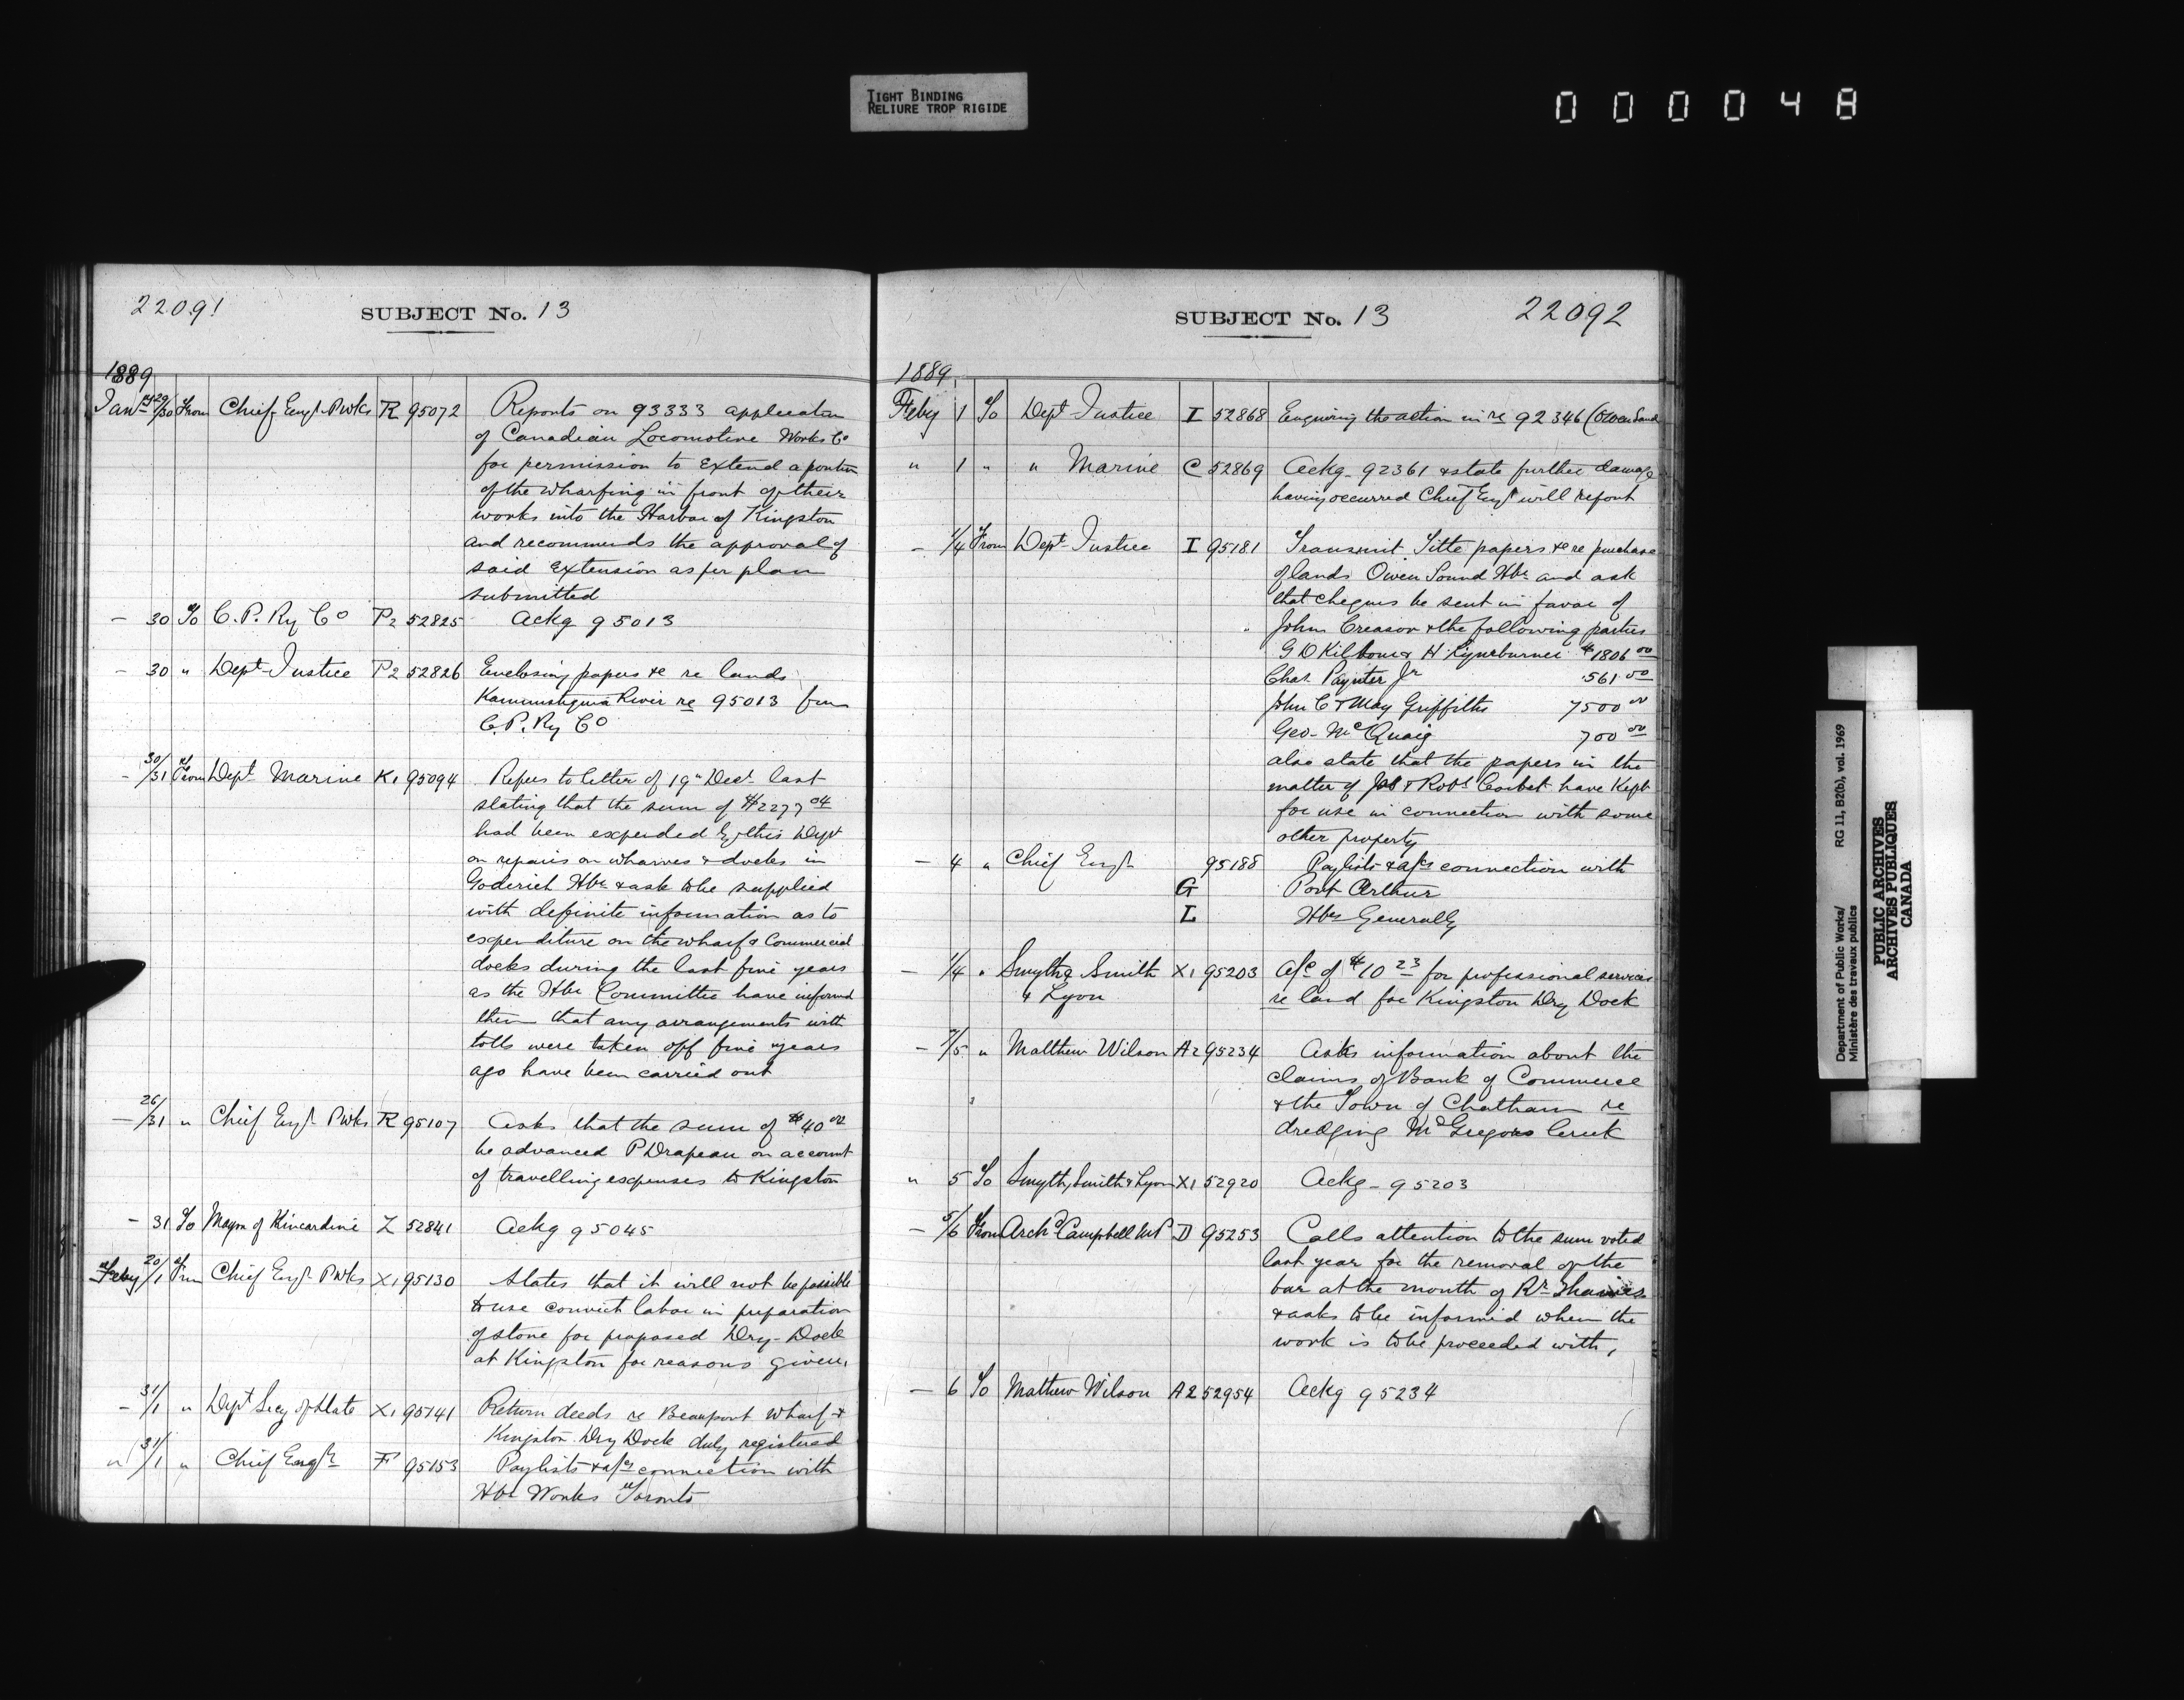 TIGHT BINDING
RELIURE TROP RIGIDE
000048
22091
SUBJECT No. 13
1889
Jany 29/30 From Chief Engr PWks R 95072 Reports on 93333 application
of Canadian Locomotive Works Co
for permission to extend a portion
of the wharfing in front of their
works into the Harbor of Kingston
and recommends the approval of
said Extension as per plan
submitted
— 30 To C. P. Ry Co P2 52825 Ackg 95013
— 30 " Dept Justice P2 52826 Enclosing papers &c re lands
Kaministiquia River re 95013 from
C. P. Ry Co
— 30/31 From Dept Marine K1 95094 Refers to letter of 19" Dec last
stating that the sum of $2277 04
had been expended by this Dept
on repairs on wharves & docks in
Goderich Hbr & ask to be supplied
with definite information as to
expenditure on the wharf & Commercial
docks during the last five years
as the Hbr Committee have informed
them that any arrangements with
tolls were taken off five years
ago have been carried out
— 26/31 " Chief Engr PWks R 95107 Asks that the sum of $40 00
be advanced P Drapeau on account
of travelling expenses to Kingston
— 31 To Mayor of Kincardine Z 52841 Ackg 95045
Feby 20/1 From Chief Engr PWks X1 95130 States that it will not be possible
to use convict labor in preparation
of stone for proposed Dry-Dock
at Kingston for reasons given.
— 31/1 " Dept Secy of State X1 95141 Return deeds re Beauport Wharf &
Kingston Dry Dock duly registered
" 31/1 " Chief Engr F 95153 Paylists & a/cs connection with
Hbr Works Toronto
SUBJECT No. 13
22092
1889
Feby 1 To Dept Justice I 52868 Enquiring the action in re 92346 (Owen Sound
" 1 " " Marine C 52869 Ackg 92361 & state further damage
having occurred Chief Engr will report
— 1/4 From Dept Justice I 95181 Transmit Title papers &c re purchase
of lands Owen Sound Hbr and ask
that cheques be sent in favor of
John Creasor & the following parties
G D Kilbourn & H $1806 00
Chas. Paynter Jr 561 00
John C & May Griffiths 7500 00
Geo. McQuaig 700 00
also state that the papers in the
matter of Jas & Robt Corbet have kept
for use in connection with some
other property
— 4 " Chief Engr 95188 Paylists & a/cs connection with
G Port Arthur
L Hbrs Generally
— 1/4 " Smythe Smith X1 95203 A/c of $10 23 for professional services
& Lyon re land for Kingston Dry Dock
— /5 " Matthew Wilson A2 95234 Asks information about the
claims of Bank of Commerce
& the Town of Chatham re
dredging McGregors Creek
" 5 To Smyth, Smith & Lyon X1 52920 Ackg — 95203
— 5/6 From Archd Campbell MP D 95253 Calls attention to the sum voted
last year for the removal of the
bar at the mouth of Rr Thames
& asks to be informed when the
work is to be proceeded with,
— 6 To Mathew Wilson A2 52954 Ackg 95234
Department of Public Works/ RG 11, B2(b), vol. 1969
Ministère des travaux publics
PUBLIC ARCHIVES
ARCHIVES PUBLIQUES
CANADA